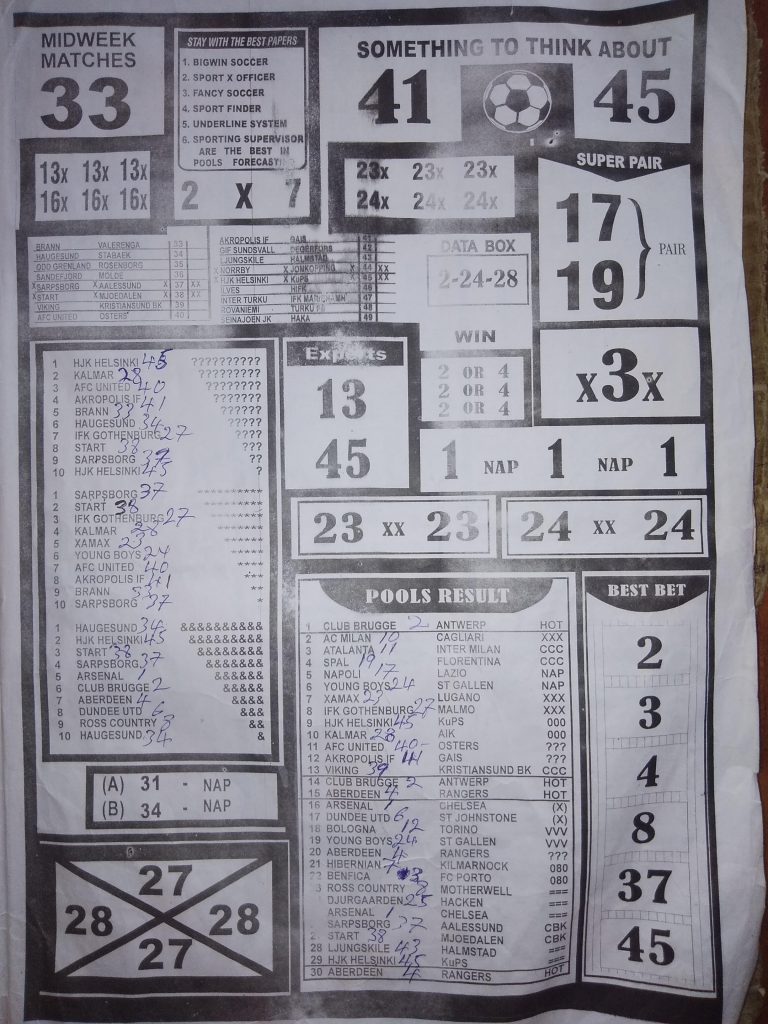 MIDWEEK
MATCHES
33
STAY WITH THE BEST PAPERS
1. BIGWIN SOCCER
2. SPORT X OFFICER
3. FANCY SOCCER
4. SPORT FINDER
5. UNDERLINE SYSTEM
6. SPORTING SUPERVISOR
ARE THE BEST IN
POOLS FORECASTING
2 X 7
SOMETHING TO THINK ABOUT
41 45
13x 13x 13x
16x 16x 16x
23x 23x 23x
24x 24x 24x
SUPER PAIR
17
19
PAIR
BRANN VALERENGA 33
HAUGESUND STABAEK 34
ODD GRENLAND ROSENBORG 35
SANDEFJORD MOLDE 36
XSARPSBORG XAALESSUND X 37 XX
XSTART X MJOEDALEN X 38 XX
VIKING KRISTIANSUND BK 39
AFC UNITED OSTERS 40
AKROPOLIS IF GAIS 41
GIF SUNDSVALL DEGERFORS 42
LJUNGSKILE HALMSTAD 43
XNORRBY X JONKOPPING X 44 XX
XHJK HELSINKI X KuPS X 45 XX
ILVES HIFK 46
INTER TURKU IFK 47
ROVANIEMI TURKU 48
SEINAJOEN JK HAKA 49
DATA BOX
2-24-28
WIN
2 OR 4
2 OR 4
2 OR 4
X3X
Experts
13
45
1 NAP 1 NAP 1
23 XX 23
24 XX 24
1 HJK HELSINKI 45 ??????????
2 KALMAR 28 ?????????
3 AFC UNITED 40 ????????
4 AKROPOLIS IF 41 ???????
5 BRANN 33 ??????
6 HAUGESUND 34 ?????
7 IFK GOTHENBURG 27 ????
8 START 38 ???
9 SARPSBORG 37 ??
10 HJK HELSINKI 45 ?
1 SARPSBORG 37 **********
2 START 38 *********
3 IFK GOTHENBURG 27 ********
4 KALMAR 28 *******
5 XAMAX 23 ******
6 YOUNG BOYS 24 *****
7 AFC UNITED 40 ****
8 AKROPOLIS IF 41 ***
9 BRANN 33 **
10 SARPSBORG 37 *
1 HAUGESUND 34 &&&&&&&&&&
2 HJK HELSINKI 45 &&&&&&&&&
3 START 38 &&&&&&&&
4 SARPSBORG 37 &&&&&&&
5 ARSENAL 1 &&&&&&
6 CLUB BRUGGE 2 &&&&&
7 ABERDEEN 4 &&&&
8 DUNDEE UTD 6 &&&
9 ROSS COUNTRY 8 &&
10 HAUGESUND 34 &
(A) 31 - NAP
(B) 34 - NAP
27
28 28
27
POOLS RESULT
1 CLUB BRUGGE 2 ANTWERP HOT
2 AC MILAN 10 CAGLIARI XXX
3 ATALANTA 11 INTER MILAN CCC
4 SPAL 19 FLORENTINA CCC
5 NAPOLI 17 LAZIO NAP
6 YOUNG BOYS 24 ST GALLEN NAP
7 XAMAX LUGANO XXX
8 IFK GOTHENBURG 27 MALMO XXX
9 HJK HELSINKI 45 KuPS 000
10 KALMAR 28 AIK 000
11 AFC UNITED 40 OSTERS ???
12 AKROPOLIS IF 41 GAIS ???
13 VIKING 39 KRISTIANSUND BK CCC
14 CLUB BRUGGE 2 ANTWERP HOT
15 ABERDEEN 4 RANGERS HOT
16 ARSENAL 1 CHELSEA (X)
17 DUNDEE UTD 6 ST JOHNSTONE (X)
18 BOLOGNA 12 TORINO VVV
19 YOUNG BOYS 24 ST GALLEN VVV
20 ABERDEEN 4 RANGERS ???
21 HIBERNIAN 7 KILMARNOCK 080
BENFICA FC PORTO 080
ROSS COUNTRY 8 MOTHERWELL ===
DJURGAARDEN 25 HACKEN ===
ARSENAL 1 CHELSEA ===
SARPSBORG 37 AALESSUND CBK
START 38 MJOEDALEN CBK
28 LJUNGSKILE 43 HALMSTAD ===
29 HJK HELSINKI 45 KuPS ===
30 ABERDEEN 4 RANGERS HOT
BEST BET
2
3
4
8
37
45